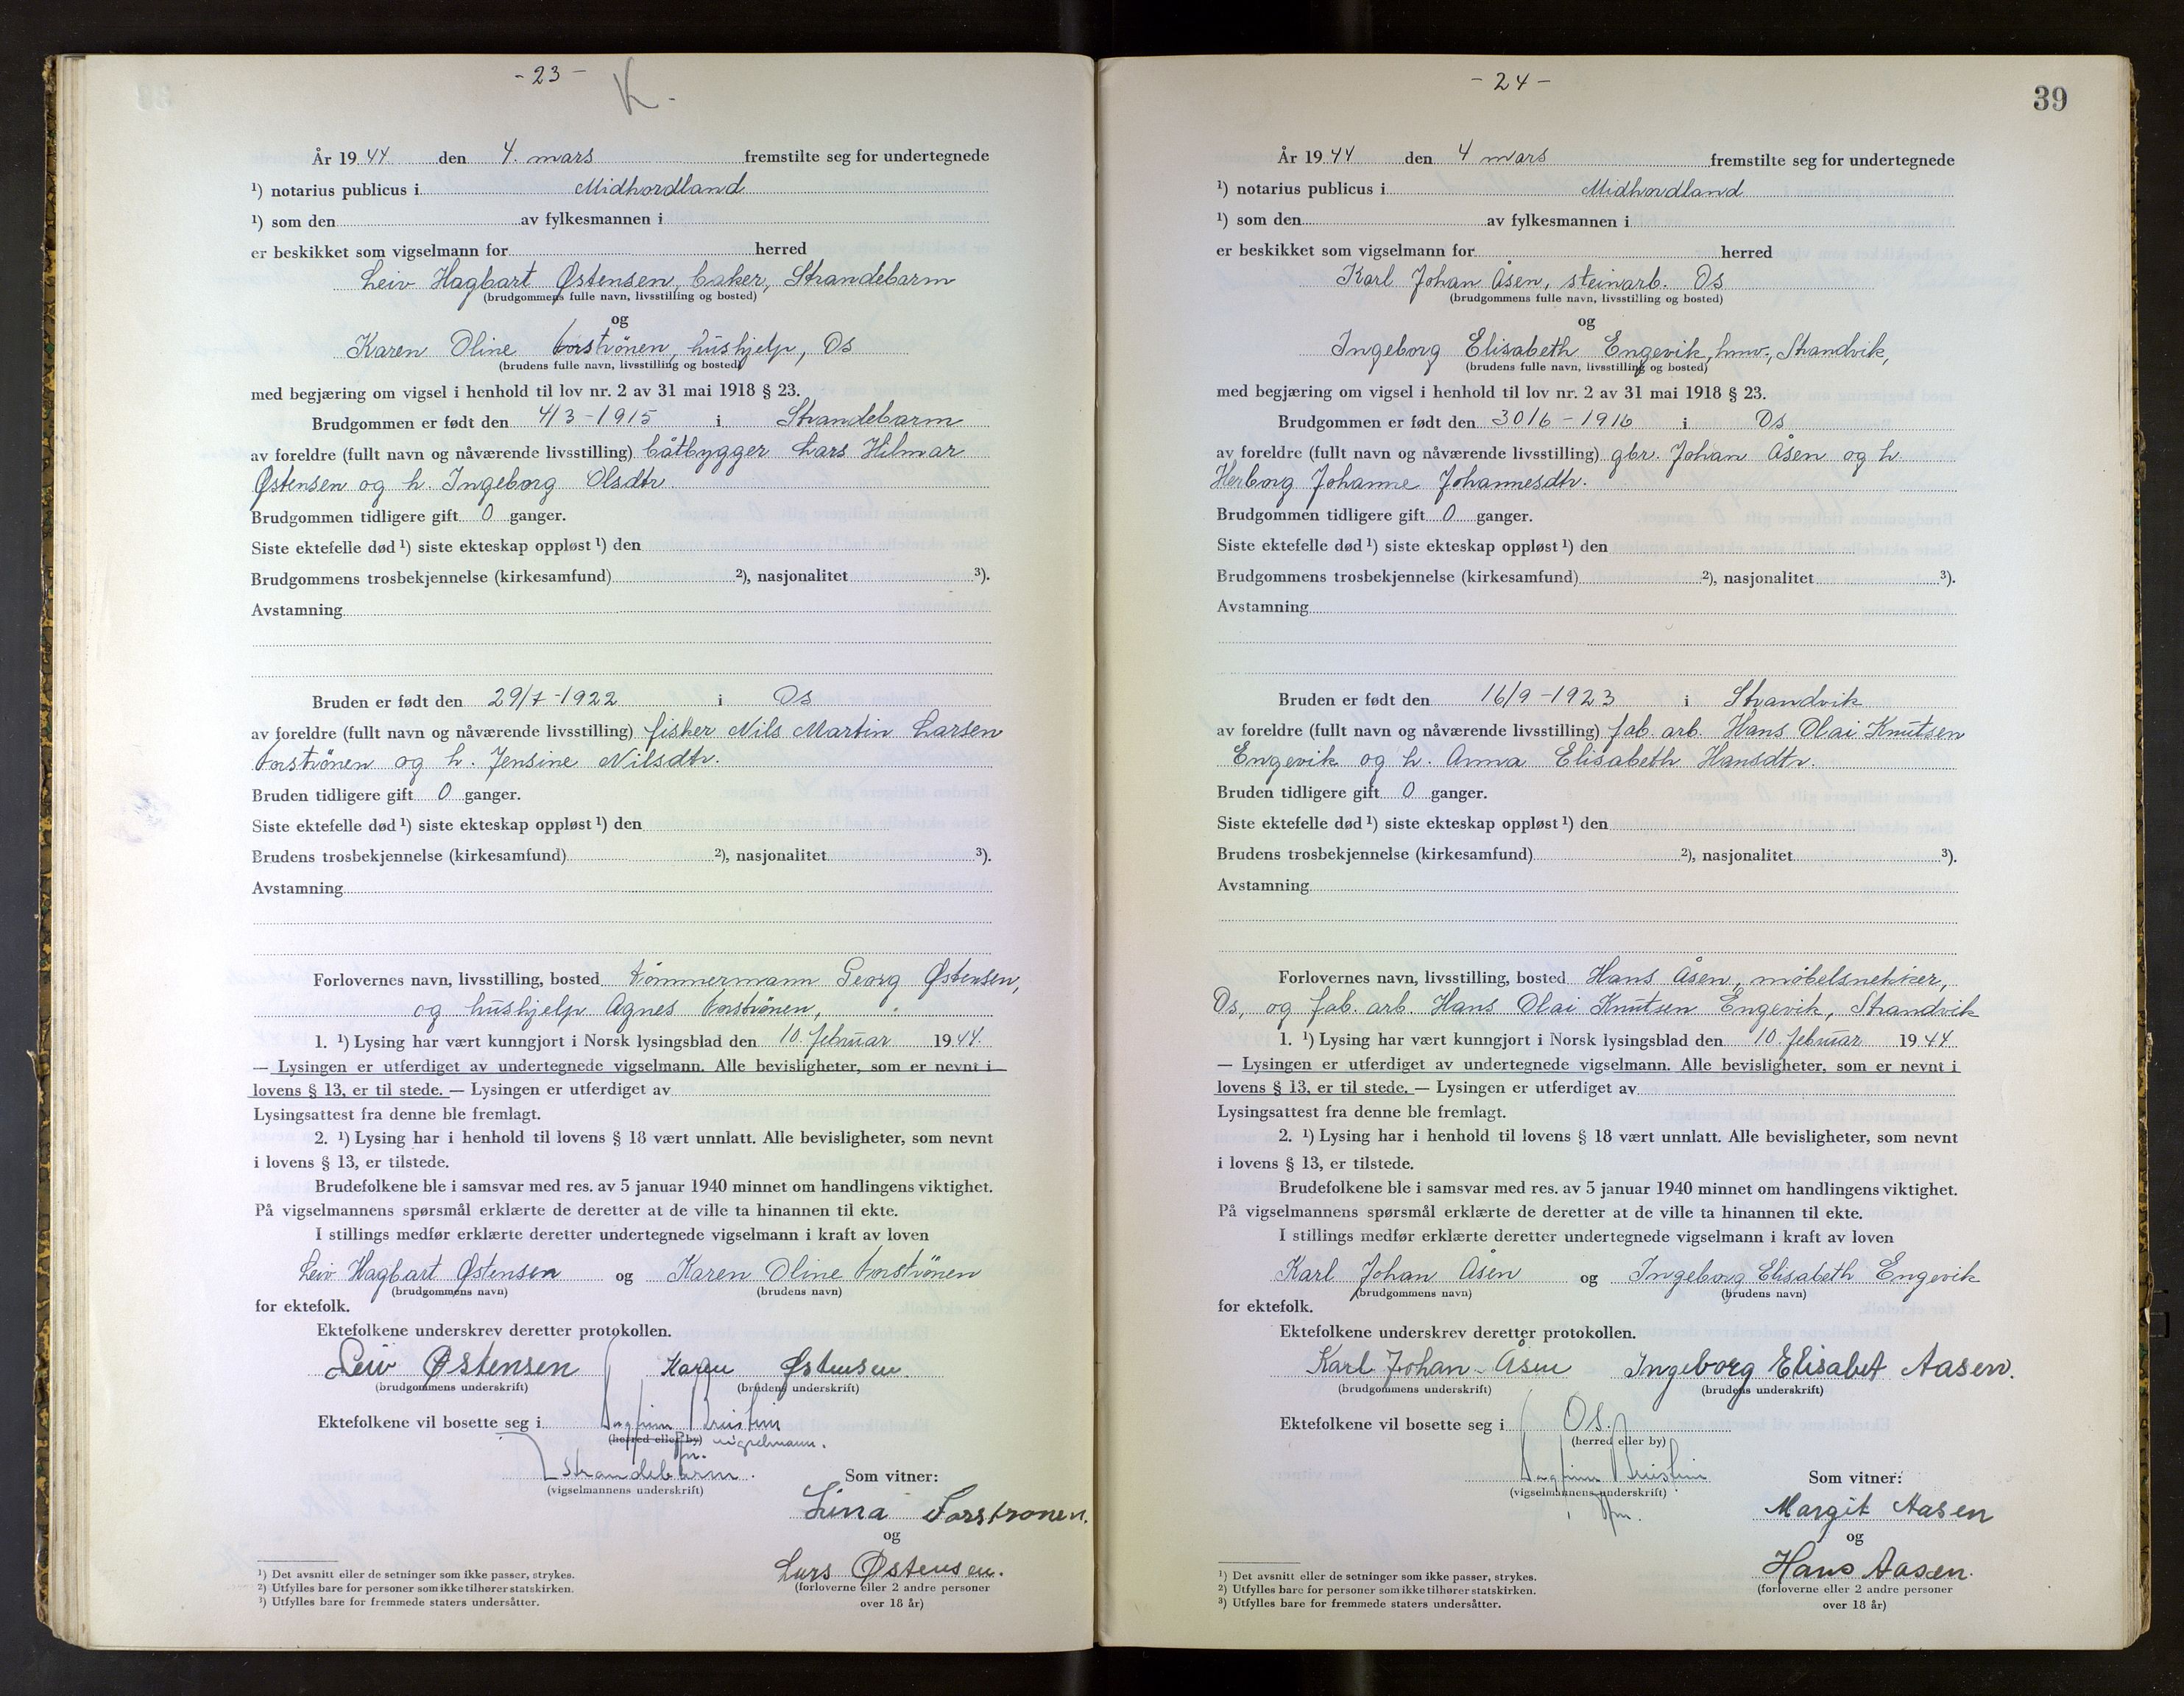 - 23 -
K.
År 1944 den 4. mars fremstilte seg for undertegnede
¹) notarius publicus i Midhordland
¹) som den av fylkesmannen i
er beskikket som vigselmann for herred
Leiv Hagbart Østensen, baker, Strandebarm
(brudgommens fulle navn, livsstilling og bosted)
og
Karen Oline Forströnen, hushjelp, Os
(brudens fulle navn, livsstilling og bosted)
med begjæring om vigsel i henhold til lov nr. 2 av 31 mai 1918 § 23.
Brudgommen er født den 4/3-1915 i Strandebarm
av foreldre (fullt navn og nåværende livsstilling) båtbygger Lars Hilmar
Østensen og h. Ingeborg Olsdtr.
Brudgommen tidligere gift 0 ganger.
Siste ektefelle død ¹) siste ekteskap oppløst ¹) den
Brudgommens trosbekjennelse (kirkesamfund) ²), nasjonalitet ³).
Avstamning
Bruden er født den 29/7-1922 i Os
av foreldre (fullt navn og nåværende livsstilling) fisker Nils Martin Larsen
Forströnen og h. Jensine Nilsdtr.
Bruden tidligere gift 0 ganger.
Siste ektefelle død ¹) siste ekteskap oppløst ¹) den
Brudens trosbekjennelse (kirkesamfund) ²), nasjonalitet ³).
Avstamning
Forlovernes navn, livsstilling, bosted tömmermann Georg Østensen,
og hushjelp Agnes Forströnen,
1. ¹) Lysing har vært kunngjort i Norsk lysingsblad den 10. februar 1944.
— Lysingen er utferdiget av undertegnede vigselmann. Alle bevisligheter, som er nevnt i
lovens § 13, er til stede. — Lysingen er utferdiget av
Lysingsattest fra denne ble fremlagt.
2. ¹) Lysing har i henhold til lovens § 18 vært unnlatt. Alle bevisligheter, som nevnt
i lovens § 13, er tilstede.
Brudefolkene ble i samsvar med res. av 5 januar 1940 minnet om handlingens viktighet.
På vigselmannens spørsmål erklærte de deretter at de ville ta hinannen til ekte.
I stillings medfør erklærte deretter undertegnede vigselmann i kraft av loven
Leiv Hagbart Østensen og Karen Oline Forströnen
(brudgommens navn) (brudens navn)
for ektefolk.
Ektefolkene underskrev deretter protokollen.
Leiv Østensen Karen Østensen.
(brudgommens underskrift) (brudens underskrift)
Ektefolkene vil bosette seg i
(herred eller by) vigselmann.
fm.
Strandebarm.
(vigselmannens underskrift)
Som vitner:
Lina Forstronen.
og
Lars Østensen.
(forloverne eller 2 andre personer
over 18 år)
¹) Det avsnitt eller de setninger som ikke passer, strykes.
²) Utfylles bare for personer som ikke tilhører statskirken.
³) Utfylles bare for fremmede staters undersåtter.
- 24 -
39
År 1944 den 4 mars fremstilte seg for undertegnede
¹) notarius publicus i Midhordland
¹) som den av fylkesmannen i
er beskikket som vigselmann for herred
Karl Johan Åsen, steinarb. Os
(brudgommens fulle navn, livsstilling og bosted)
og
Ingeborg Elisabeth Engevik, hmv., Strandvik,
(brudens fulle navn, livsstilling og bosted)
med begjæring om vigsel i henhold til lov nr. 2 av 31 mai 1918 § 23.
Brudgommen er født den 30/6-1916 i Os
av foreldre (fullt navn og nåværende livsstilling) gbr. Johan Åsen og h
Herborg Johanne Johannesdtr.
Brudgommen tidligere gift 0 ganger.
Siste ektefelle død ¹) siste ekteskap oppløst ¹) den
Brudgommens trosbekjennelse (kirkesamfund) ²), nasjonalitet ³).
Avstamning
Bruden er født den 16/9-1923 i Strandvik
av foreldre (fullt navn og nåværende livsstilling) fab. arb. Hans Olai Knutsen
Engevik og h. Anna Elisabeth Hansdtr.
Bruden tidligere gift 0 ganger.
Siste ektefelle død ¹) siste ekteskap oppløst ¹) den
Brudens trosbekjennelse (kirkesamfund) ²), nasjonalitet ³).
Avstamning
Forlovernes navn, livsstilling, bosted Hans Åsen, møbelsnekker,
Os, og fab. arb. Hans Olai Knutsen Engevik, Strandvik
1. ¹) Lysing har vært kunngjort i Norsk lysingsblad den 10. februar 1944
— Lysingen er utferdiget av undertegnede vigselmann. Alle bevisligheter, som er nevnt i
lovens § 13, er til stede. — Lysingen er utferdiget av
Lysingsattest fra denne ble fremlagt.
2. ¹) Lysing har i henhold til lovens § 18 vært unnlatt. Alle bevisligheter, som nevnt
i lovens § 13, er tilstede.
Brudefolkene ble i samsvar med res. av 5 januar 1940 minnet om handlingens viktighet.
På vigselmannens spørsmål erklærte de deretter at de ville ta hinannen til ekte.
I stillings medfør erklærte deretter undertegnede vigselmann i kraft av loven
Karl Johan Åsen og Ingeborg Elisabeth Engevik
(brudgommens navn) (brudens navn)
for ektefolk.
Ektefolkene underskrev deretter protokollen.
Karl Johan Åsen Ingeborg Elisabet Aasen.
(brudgommens underskrift) (brudens underskrift)
Ektefolkene vil bosette seg i Os.
(herred eller by)
(vigselmannens underskrift)
fm.
Som vitner:
Margit Aasen
og
Hans Aasen.
(forloverne eller 2 andre personer
over 18 år)
¹) Det avsnitt eller de setninger som ikke passer, strykes.
²) Utfylles bare for personer som ikke tilhører statskirken.
³) Utfylles bare for fremmede staters undersåtter.